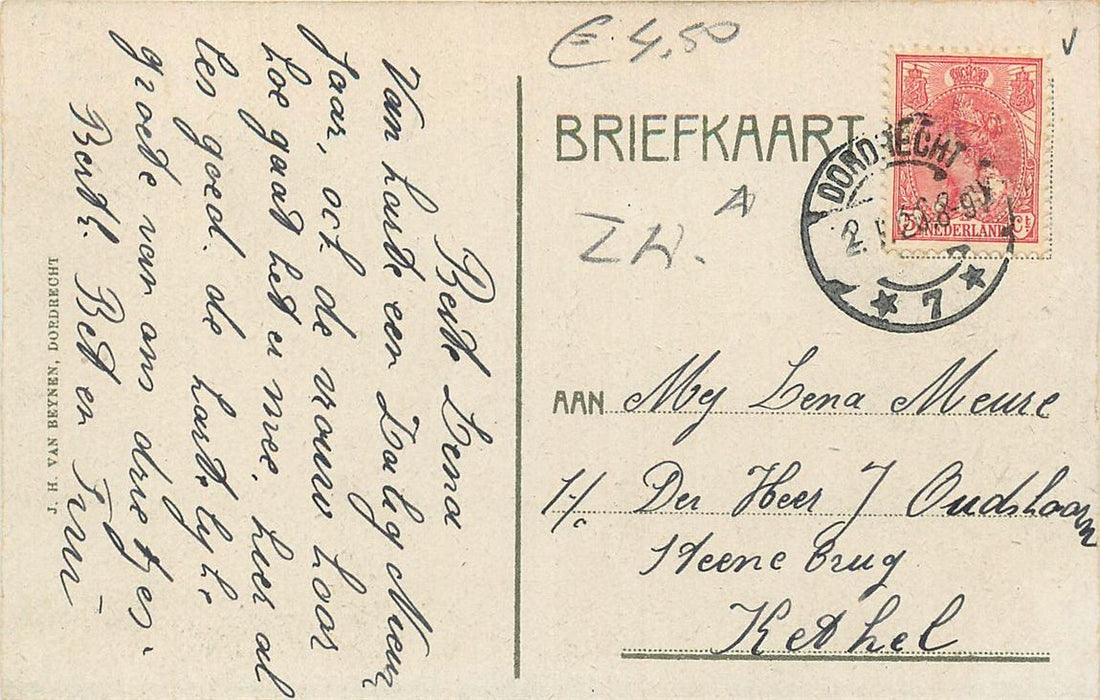 Beste Lena
Van harte een Zalig Nieuw
Jaar, ook de vrouw hoor
hoe gaat het er mee. hier al
les goed. de hartelijke
groete van ons drietjes.
Berth. Bet en
J. H. VAN BEYNEN, DORDRECHT
E 4,50
BRIEFKAART
Z H.
DORDRECHT
8-9V
7
5 NEDERLAND Ct
AAN Mej Lena Meure
p/a Den Heer J Oudshoorn
Steene brug
Kethel